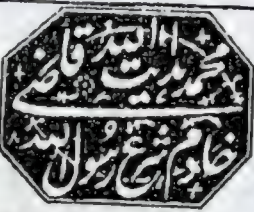 محمد ہدایت اللہ قاضے
خادم شرع رسول اللہ